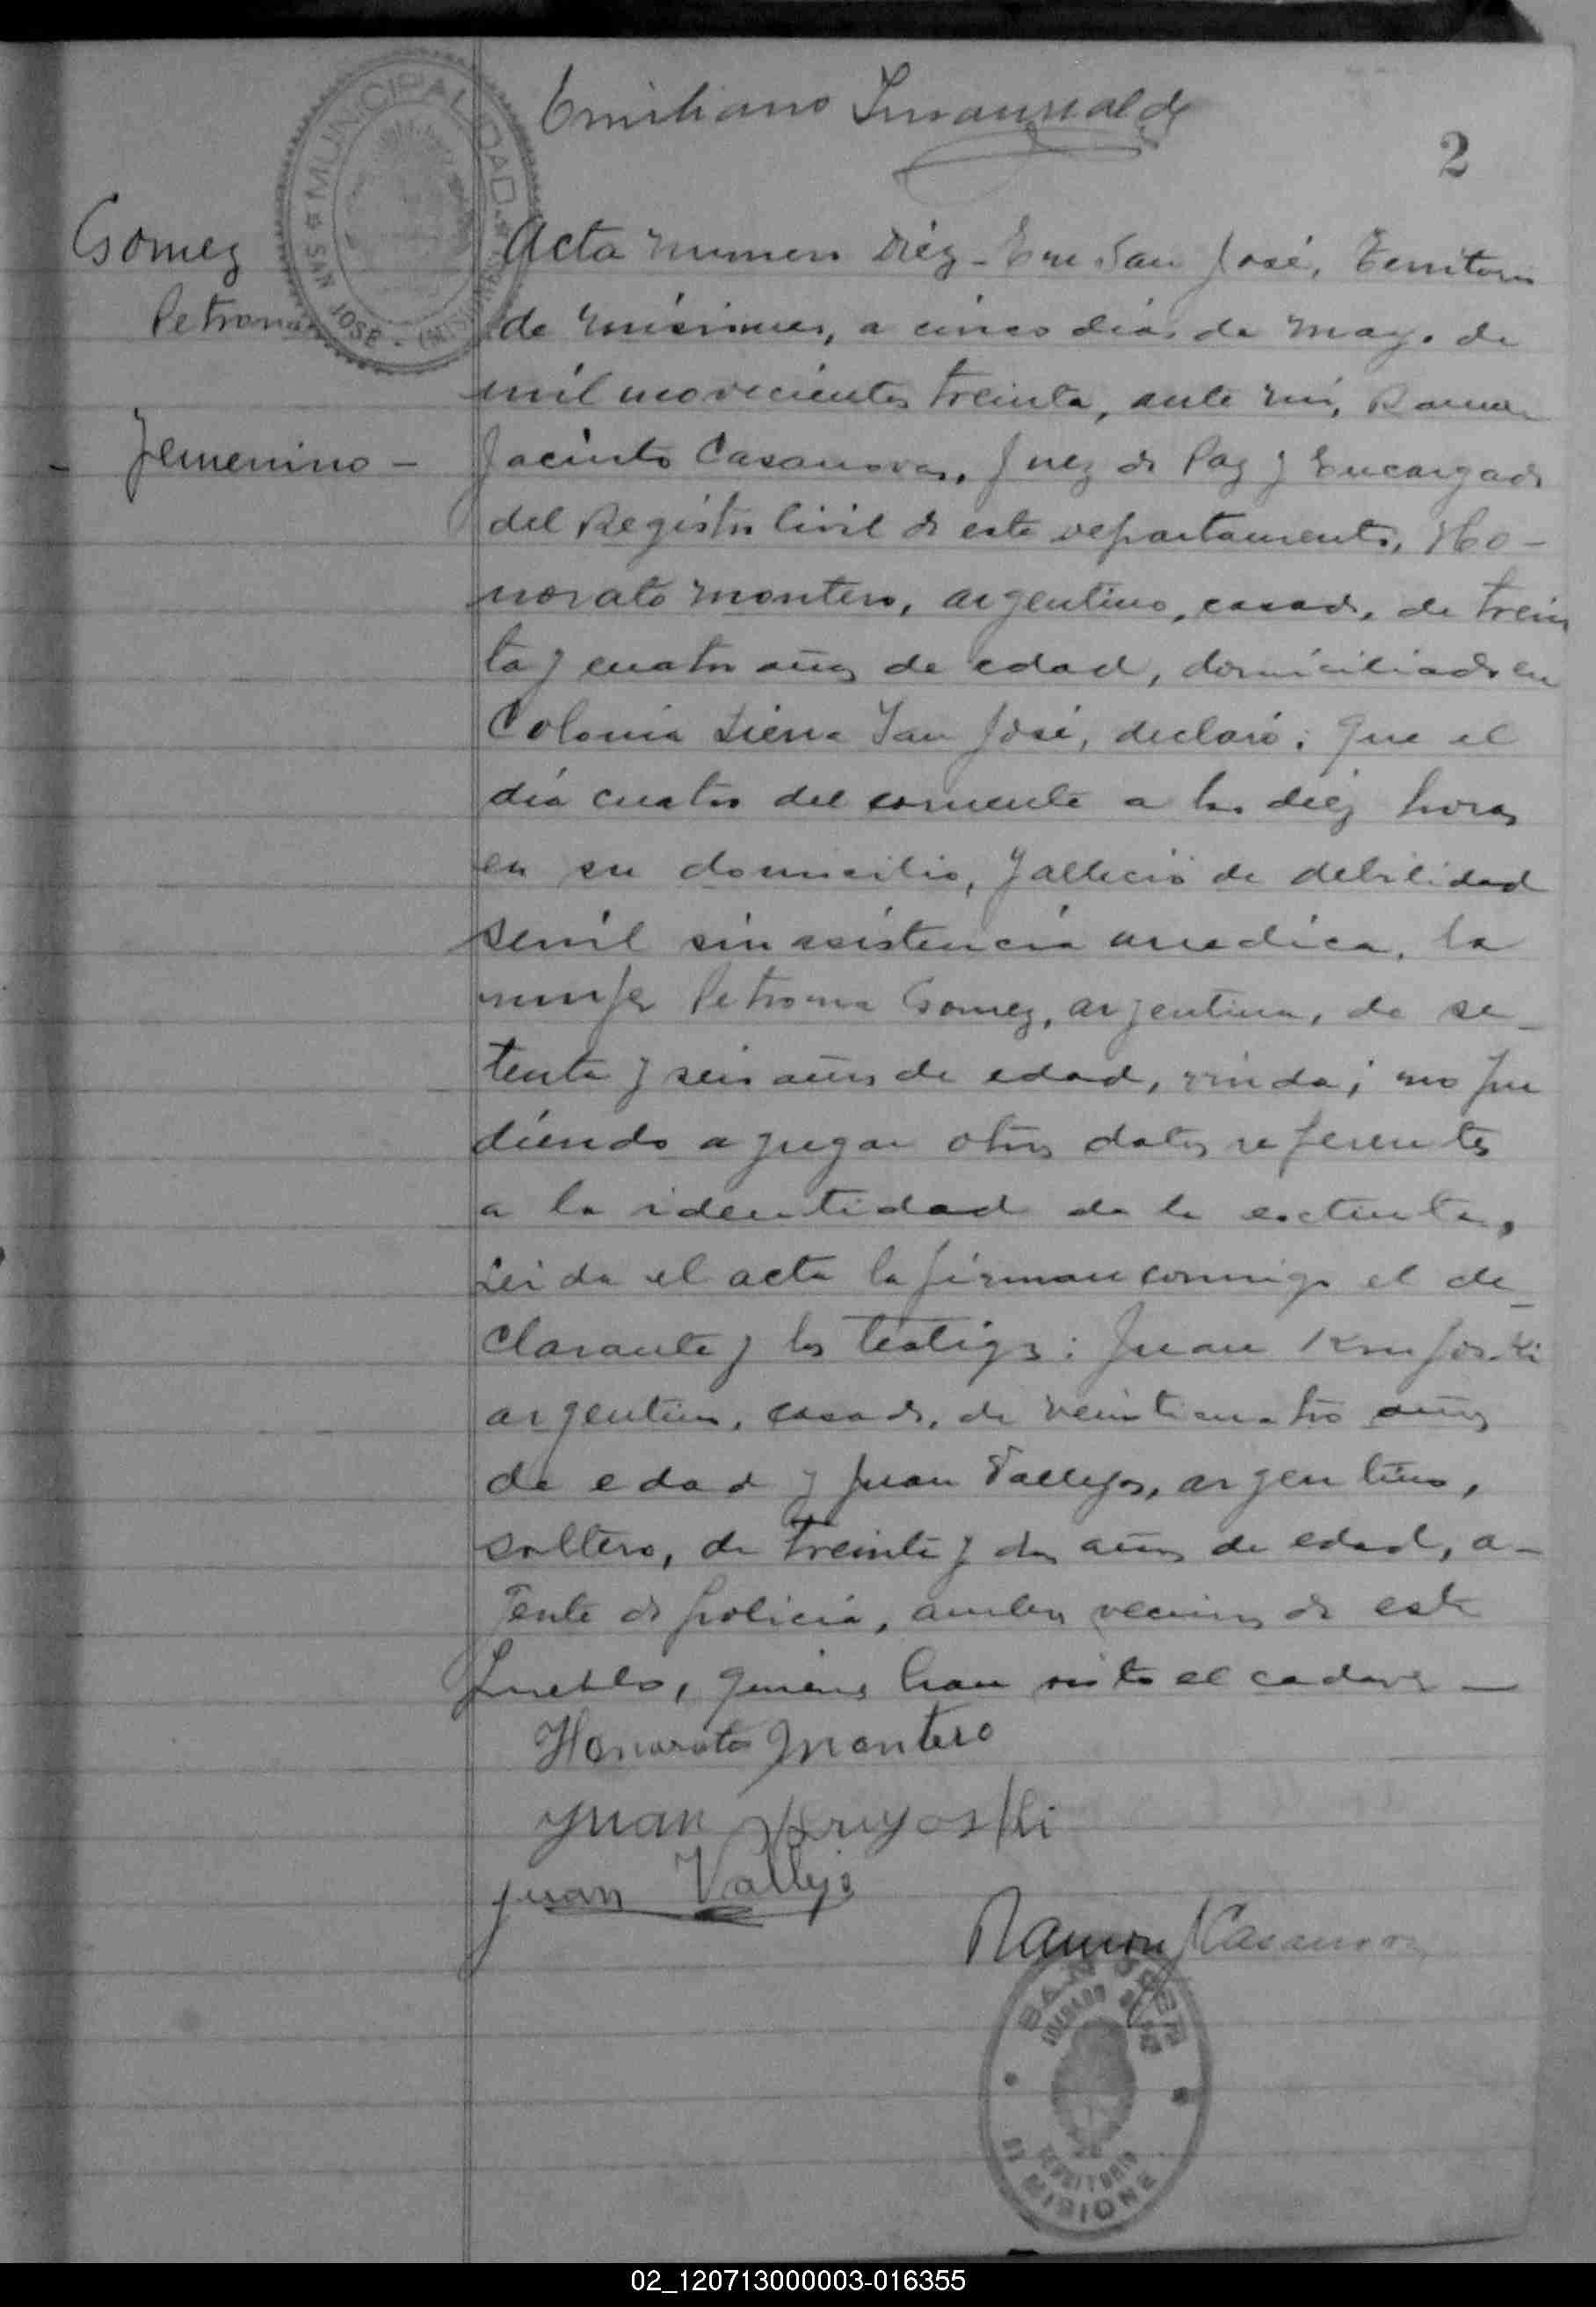 Emiliano
2
MUNICIPALIDAD
SAN JOSE - (MISIONES)
Gomez
Petrona
- Femenino -
Acta numero Diéz - En San José, Territorio
de Misiones, a cinco dias de Mayo de
mil novecientos treinta, ante mi, Ramon
Jacinto Casanova, Juez de Paz y Encargado
del Registro Civil de este departamento, Ho-
norato Montero, argentino, casado, de trein
ta y cuatro años de edad, domiciliado en
Colonia Sierra San José, declaró: Que el
dia cuatro del corriente a las diéz horas
en su domicilio, falleció de debilidad
senil sin asistencia medica, la
mujer Petrona Gomez, argentina, de se-
tenta y seis años de edad, viuda; no pu
diendo agregar otros datos referentes
a la identidad de la extinta.
Leida el acta la firman conmigo el de-
clarante y los testigos: Juan
argentino, casado, de veinticuatro años
de edad y Juan Vallejos, argentino,
soltero, de treinta y dos años de edad, a-
gente de policia, ambos vecinos de este
pueblo, quienes han visto el cadaver -
Honorato Montero
Juan
Juan Vallejo
Ramon J Casanova
JUZGADO DE PAZ
TERRITORIO
DE MISIONES
02_120713000003-016355